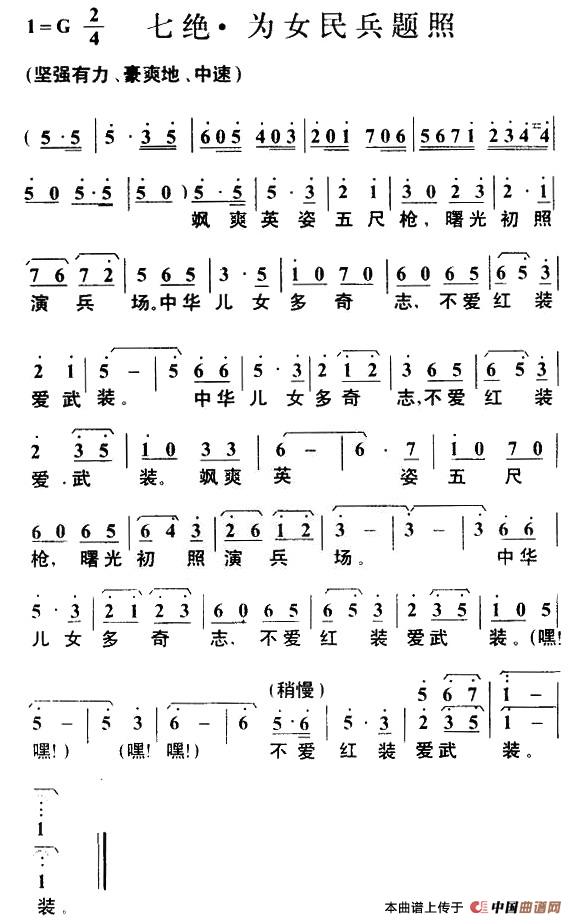 1=G 2/4 七绝·为女民兵题照
(坚强有力、豪爽地、中速)
( 5·5 | 5·3 5 | 605 403 | 201 706 | 5671 2344 |
5 0 5·5 | 5 0 ) 5·5 | 5·3 | 2 1 | 3 0 2 3 | 2·1 |
飒爽英姿五尺枪，曙光初照
7 6 7 2 | 5 6 5 | 3·5 | 1 0 7 0 | 6 0 6 5 | 6 5 3 |
演兵场。中华儿女多奇志，不爱红装
2 1 | 5 – | 5 6 6 | 5·3 | 2 1 2 | 3 6 5 | 6 5 3 |
爱武装。中华儿女多奇志，不爱红装
2 3 5 | 1 0 3 3 | 6 – | 6·7 | 1 0 7 0 |
爱·武装。飒爽英姿五尺
6 0 6 5 | 6 4 3 | 2 6 1 2 | 3 – | 3 – | 3 6 6 |
枪，曙光初照演兵场。中华
5·3 | 2 1 2 3 | 6 0 6 5 | 3 5 3 | 2 3 5 | 1 0 5 |
儿女多奇志，不爱红装爱武装。(嘿!
(稍慢)
5 6 7 | 1 –
5 – | 5 3 | 6 – | 6 5·6 | 5·3 | 2 3 5 | 1 – |
嘿!) (嘿! 嘿!) 不爱红装爱武装。
1
1
装。
本曲谱上传于 中国曲谱网